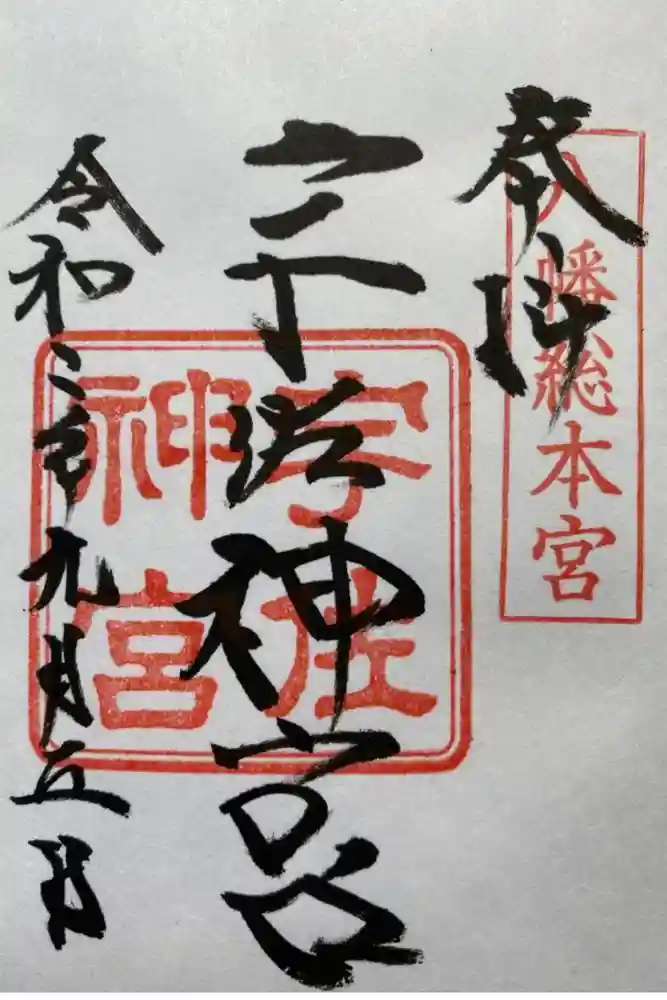 奉拝
八幡総本宮
宇佐神宮
宇佐神宮
令和二年九月五日